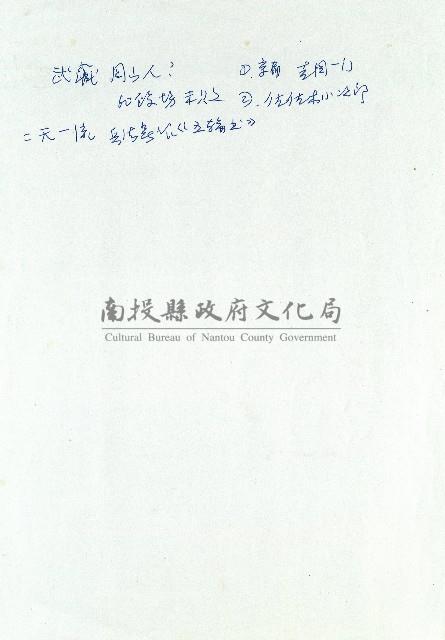 武藏 岡山人? ① 京都 吉岡一门
次 ②. 佐佐木小次郎
二天一流 兵法 《五輪书》
南投縣政府文化局
Cultural Bureau of Nantou County Government